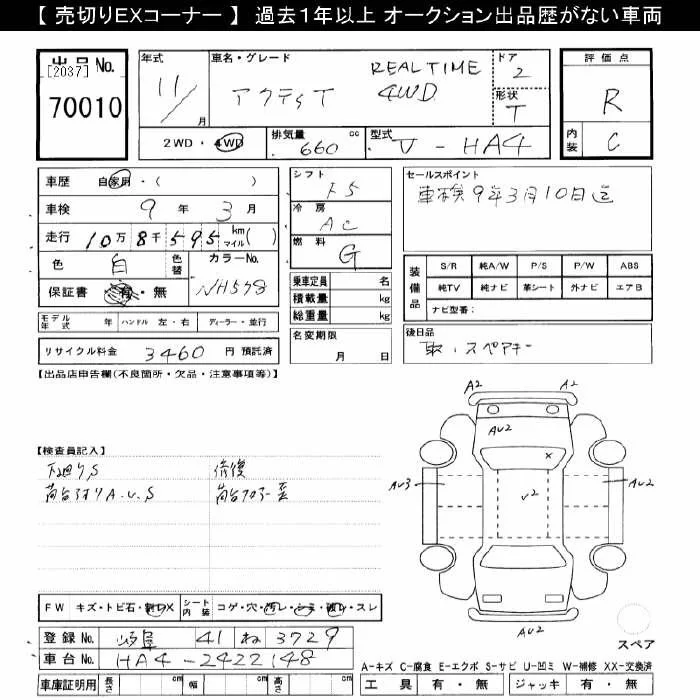 【 売切りEXコーナー 】 過去1年以上 オークション出品歴がない車両
出品 No.
[2037]
70010
年式
11/
月
車名・グレード
アクティT
REALTIME
4WD
ドア
2
形状
T
評価点
R
内装
C
2WD・4WD
排気量
660
cc
型式
V-HA4
車歴
自家用・( )
車検
9 年 3 月
走行
10万 8千 595 km マイル( )
色
白
色替
カラーNo.
NH578
保証書
有・無
シフト
F5
冷房
AC
燃料
G
セールスポイント
車検 9年3月10日迄
装備品
S/R 純A/W P/S P/W ABS
純TV 純ナビ 革シート 外ナビ エアB
ナビ型番:
乗車定員 名
積載量 kg
総重量 kg
モデル年式 年 ハンドル 左・右 ディーラー・並行
名変期限
月 日
後日品
取・スペアキー
リサイクル料金 3460 円 預託済
【出品店申告欄(不良箇所・欠品・注意事項等)】
【検査員記入】
下廻りS 修復
荷台アオリA.U.S
A2 A2
AU2
×
AU3 U2 AU2
AU2
スペア
FW キズ・トビ石・割レX
シート内装 コゲ・穴・汚レ・シミ・破レ・スレ
登録No. 41 ね 3729
車台No. HA4-2422148
A-キズ C-腐食 E-エクボ S-サビ U-凹ミ W-補修 XX-交換済
車庫証明用 長さ cm 幅 cm 高さ cm
工具 有・無 ジャッキ 有・無